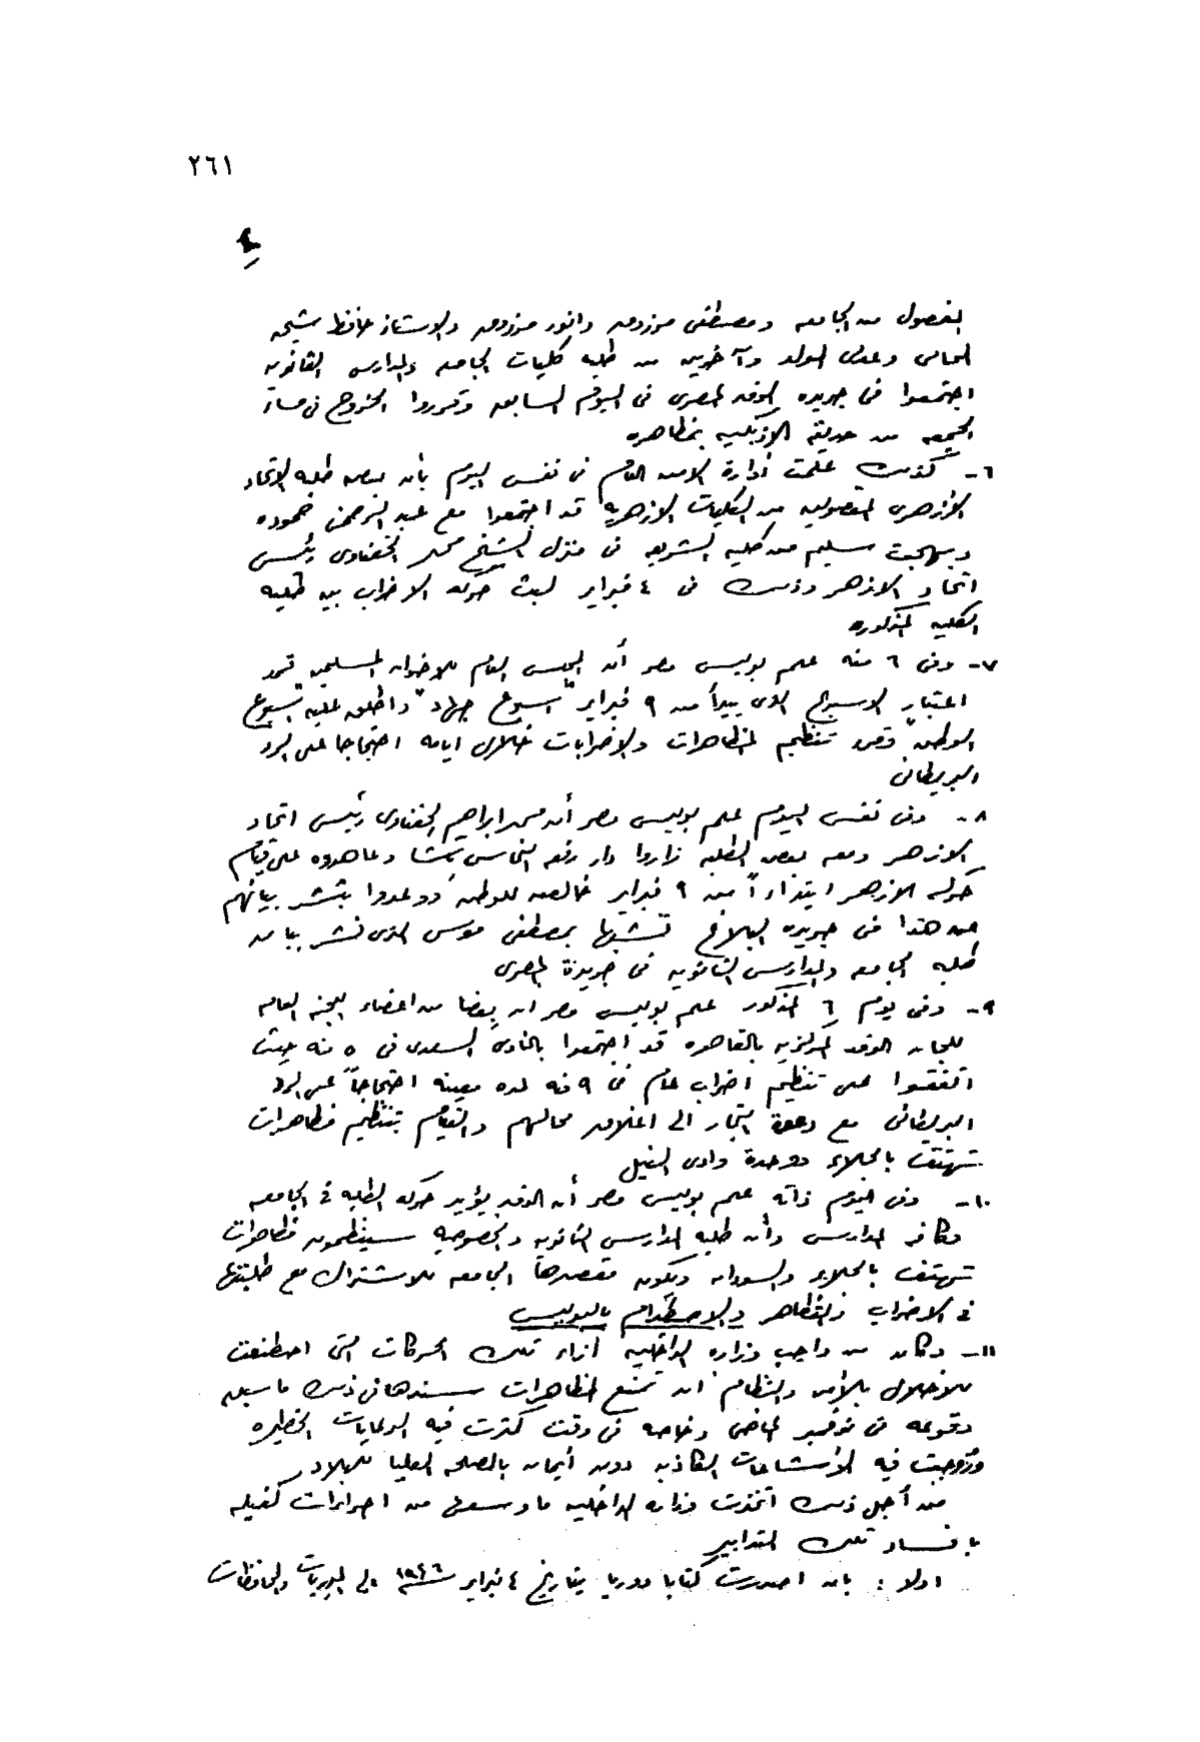 ٢٦١
٤
المفصول من الجامعه ومصطفى مرزوق وانور مرزوق والاستاذ حافظ شيحه
المحامى وعدلى المولد وآخرين من طلبه كليات الجامعه والمدارس الثانويه
اجتمعوا فى جريده الوفد المصرى فى اليوم السابع وقرروا الخروج فى مساء
الجمعه من حديقة الازبكيه بمظاهره
٦- كذلك علمت إدارة الامن العام فى نفس اليوم بأن بعض طلبه الاتحاد
الأزهرى المفصولين من الكليات الازهريه قد اجتمعوا مع عبد الرحمن حموده
وبهجت سليم من كليه الشريعه فى منزل الشيخ محمد الحفناوى رئيس
اتحاد الازهر وذلك فى ٤ فبراير لبث حركة الاضراب بين طلبه
الكليه المذكوره
٧- وفى ٦ منه علم بوليس مصر أن المجلس العام للاخوان المسلمين قرر
اعتبار الاسبوع الذى يبدأ من ٩ فبراير "اسبوع جهاد" واطلق عليه "اسبوع
الوطن" وقرر تنظيم المظاهرات والاضرابات خلال ايامه احتجاجا على الرد
البريطانى
٨- وفى نفس اليوم علم بوليس مصر أن محمد ابراهيم الحفناوى رئيس اتحاد
الازهر ومعه بعض الطلبه زاروا دار رفعه النحاس باشا وعاهدوه على قيام
حركه الازهر ابتداءاً من ٩ فبراير خالصه للوطن ووعدوا بنشر بيانهم
عن هذا فى جريده البلاغ تشبها بمصطفى موسى الذى نشر بيا من
طلبه الجامعه والمدارس الثانويه فى جريدة المصرى
٩- وفى يوم ٦ المذكور علم بوليس مصر ان بعضا من اعضاء اللجنه العامه
للجان الوفد المركزيه بالقاهره قد اجتمعوا بالنادى السعدى فى ٥ منه حيث
اتفقوا على تنظيم اضراب عام فى ٩ منه لمده معينه احتجاجاً على الرد
البريطانى مع دعوة التجار الى اغلاق محالهم والقيام بتنظيم مظاهرات
تهتف بالجلاء ووحدة وادى النيل
١٠- وفى اليوم ذاته علم بوليس مصر أن الوفد يؤيد حركه الطلبه فى الجامعه
وكافه المدارس وأن طلبه المدارس الثانويه والخصوصيه سينظمون مظاهرات
تهتف بالجلاء والسودان ويكون مقصدها الجامعه للاشتراك مع طلبتها
فى الاضراب والتظاهر والاصطدام بالبوليس
١١- وكان من واجب وزاره الداخليه ازاء تلك الحركات التى اصطنعت
للاخلال بالأمن والنظام ان تمنع المظاهرات سندها فى ذلك ما سبق
وقوعه فى نوفمبر الماضى وخاصه فى وقت كثرت فيه الدعايات الخطيره
وروجت فيه الأشاعات الكاذبه دون أيمان بالمصلحه العليا للبلاد
من أجل ذلك اتخذت وزاره الداخليه ما وسعها من اجراءات كفيله
بافساد تلك التدابير
اولا : بان اصدرت كتابا دوريا بتاريخ ٤ فبراير سنة ١٩٤٦ الى المديريات والمحافظات